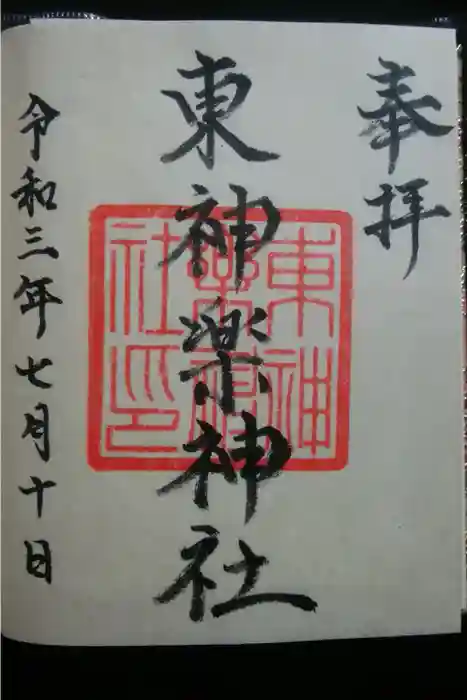 奉拝
東神楽神社
令和三年七月十日
東神
楽神
社印